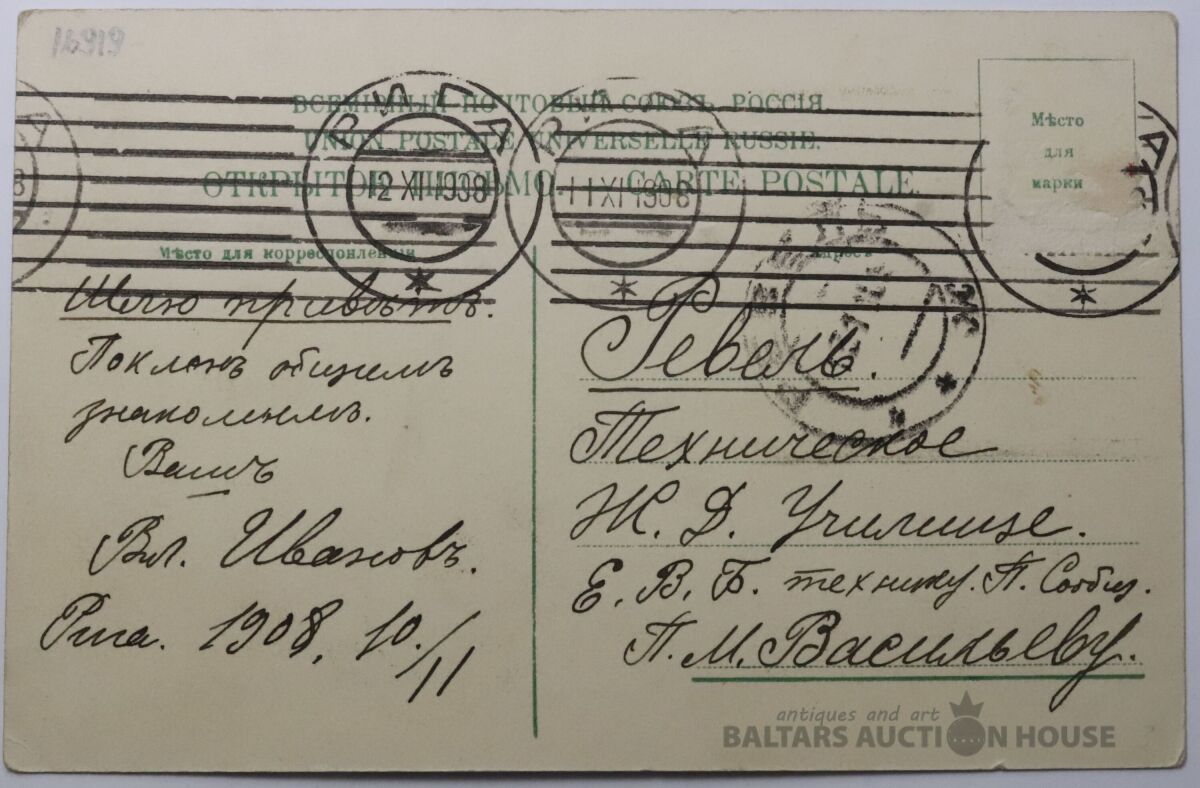 ВСЕМІРНЫЙ ПОЧТОВЫЙ СОЮЗЪ. РОССІЯ.
UNION POSTALE UNIVERSELLE RUSSIE.
ОТКРЫТОЕ ПИСЬМО. — CARTE POSTALE.
Мѣсто
для
марки
РИГА
12 XI 1908
РИГА
11 XI 1908
Мѣсто для корреспонденціи
Адресъ
Шлю привѣтъ.
Поклонъ общимъ
знакомымъ.
Вашъ
Вл. Ивановъ.
Рига. 1908, 10/11
Ревель.
Техническое
Ж. Д. Училище.
Е. В. Б. технику. П.
П. М. Васильеву.
antiques and art
BALTARS AUCTION HOUSE